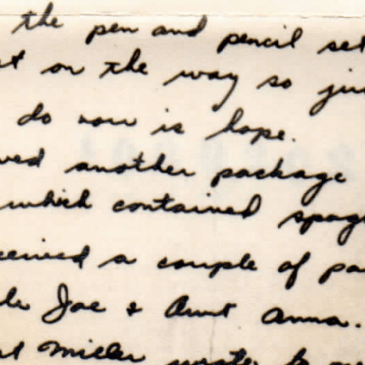 the pen and pencil set
on the way so
do now is hope.
another package
which contained spag
ceived a couple of pa
Joe & Aunt Anna.
Miller wrote to